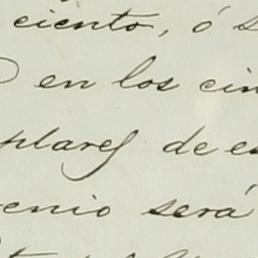 ciento, ó
en los cin
plares de es
enio será